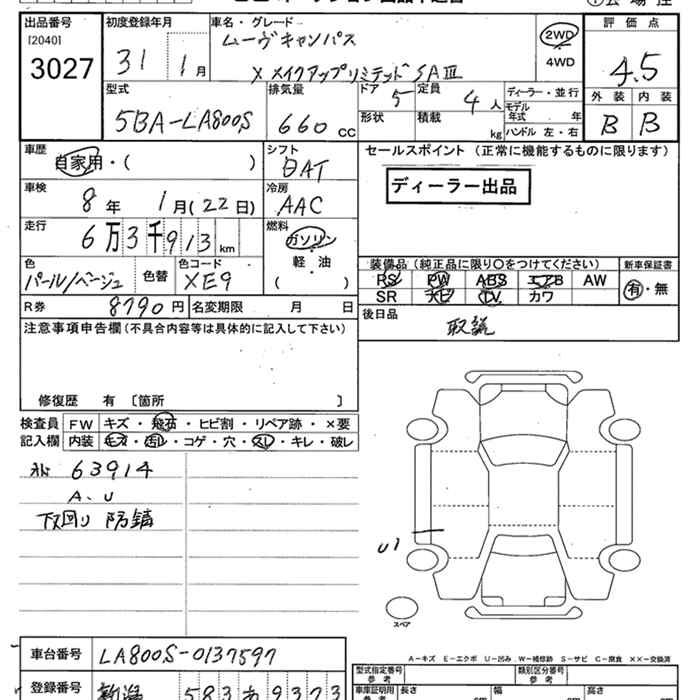 出品番号
[2040]
3027
初度登録年月
31 1月
車名・グレード
ムーヴキャンバス
X メイクアップリミテッド SAⅢ
2WD
4WD
評価点
4.5
外装 内装
B B
型式
5BA-LA800S
排気量
660 cc
ドア 5
定員 4人
形状
積載 kg
ディーラー・並行
モデル年式 年
ハンドル 左・右
車歴
自家用・( )
シフト
DAT
車検
8年 1月(22日)
冷房
AAC
走行
6万3千913km
燃料
ガソリン
軽・油
( )
色
パール/ベージュ
色替
色コード
XE9
R券 8790円
名変期限 月 日
セールスポイント (正常に機能するものに限ります)
ディーラー出品
装備品 (純正品に限り○をつけてください)
PS PW ABS エアB AW
SR ナビ TV カワ
新車保証書
有・無
後日品
取説
注意事項申告欄(不具合内容等は具体的に記入して下さい)
修復歴 有 [箇所 ]
検査員記入欄
FW キズ・飛石・ヒビ割・リペア跡・×要
内装 キズ・汚れ・コゲ・穴・スレ・キレ・破レ
63914
A、U
下回り 防錆
U1
スペア
A-キズ E-エクボ U-凹み W-補修跡 S-サビ C-腐食 ××-交換済
車台番号 LA800S-0137597
登録番号 新潟 583 あ 9373
型式指定番号
参考
類別区分番号
参考
車庫証明用
参考
長さ cm
幅 cm
高 cm